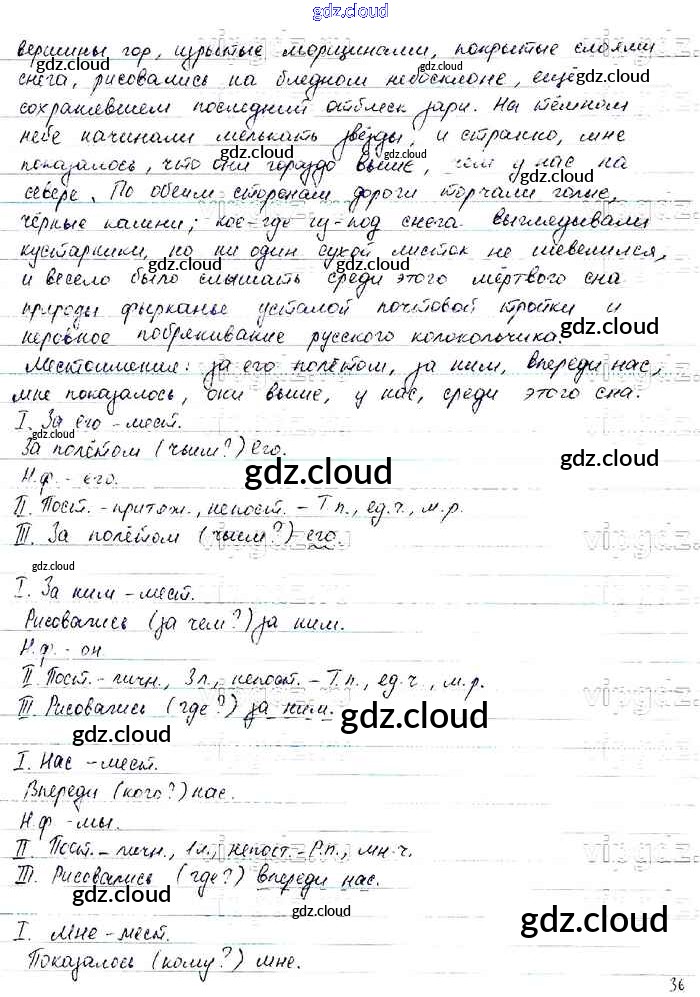 gdz.cloud
вершины гор, изрытые морщинами, покрытые слоями
снега, рисовались на бледном небосклоне, ещё
сохранявшем последний отблеск зари. На тёмном
небе начинали мелькать звёзды, и странно, мне
показалось, что они гораздо выше, чем у нас на
севере. По обеим сторонам дороги торчали голые,
чёрные камни; кое-где из-под снега выглядывали
кустарники, но ни один сухой листок не шевелился,
и весело было слышать среди этого мёртвого сна
природы фырканье усталой почтовой тройки и
неровное побрякивание русского колокольчика.
Местоимения: за его полётом, за ним, впереди нас,
мне показалось, они выше, у нас, среди этого сна.
I. За его - мест.
За полётом (чьим?) его.
Н.ф. - его.
II. Пост. - притяж., непост. - Т.п., ед.ч., м.р.
III. За полётом (чьим?) его.
I. За ним - мест.
Рисовались (за чем?) за ним.
Н.ф. - он.
II. Пост. - личн., 3л., непост. - Т.п., ед.ч., м.р.
III. Рисовались (где?) за ним.
I. Нас - мест.
Впереди (кого?) нас.
Н.ф. - мы.
II. Пост. - личн., 1л., непост. - Р.п., мн.ч.
III. Рисовались (где?) впереди нас.
I. Мне - мест.
Показалось (кому?) мне.
36